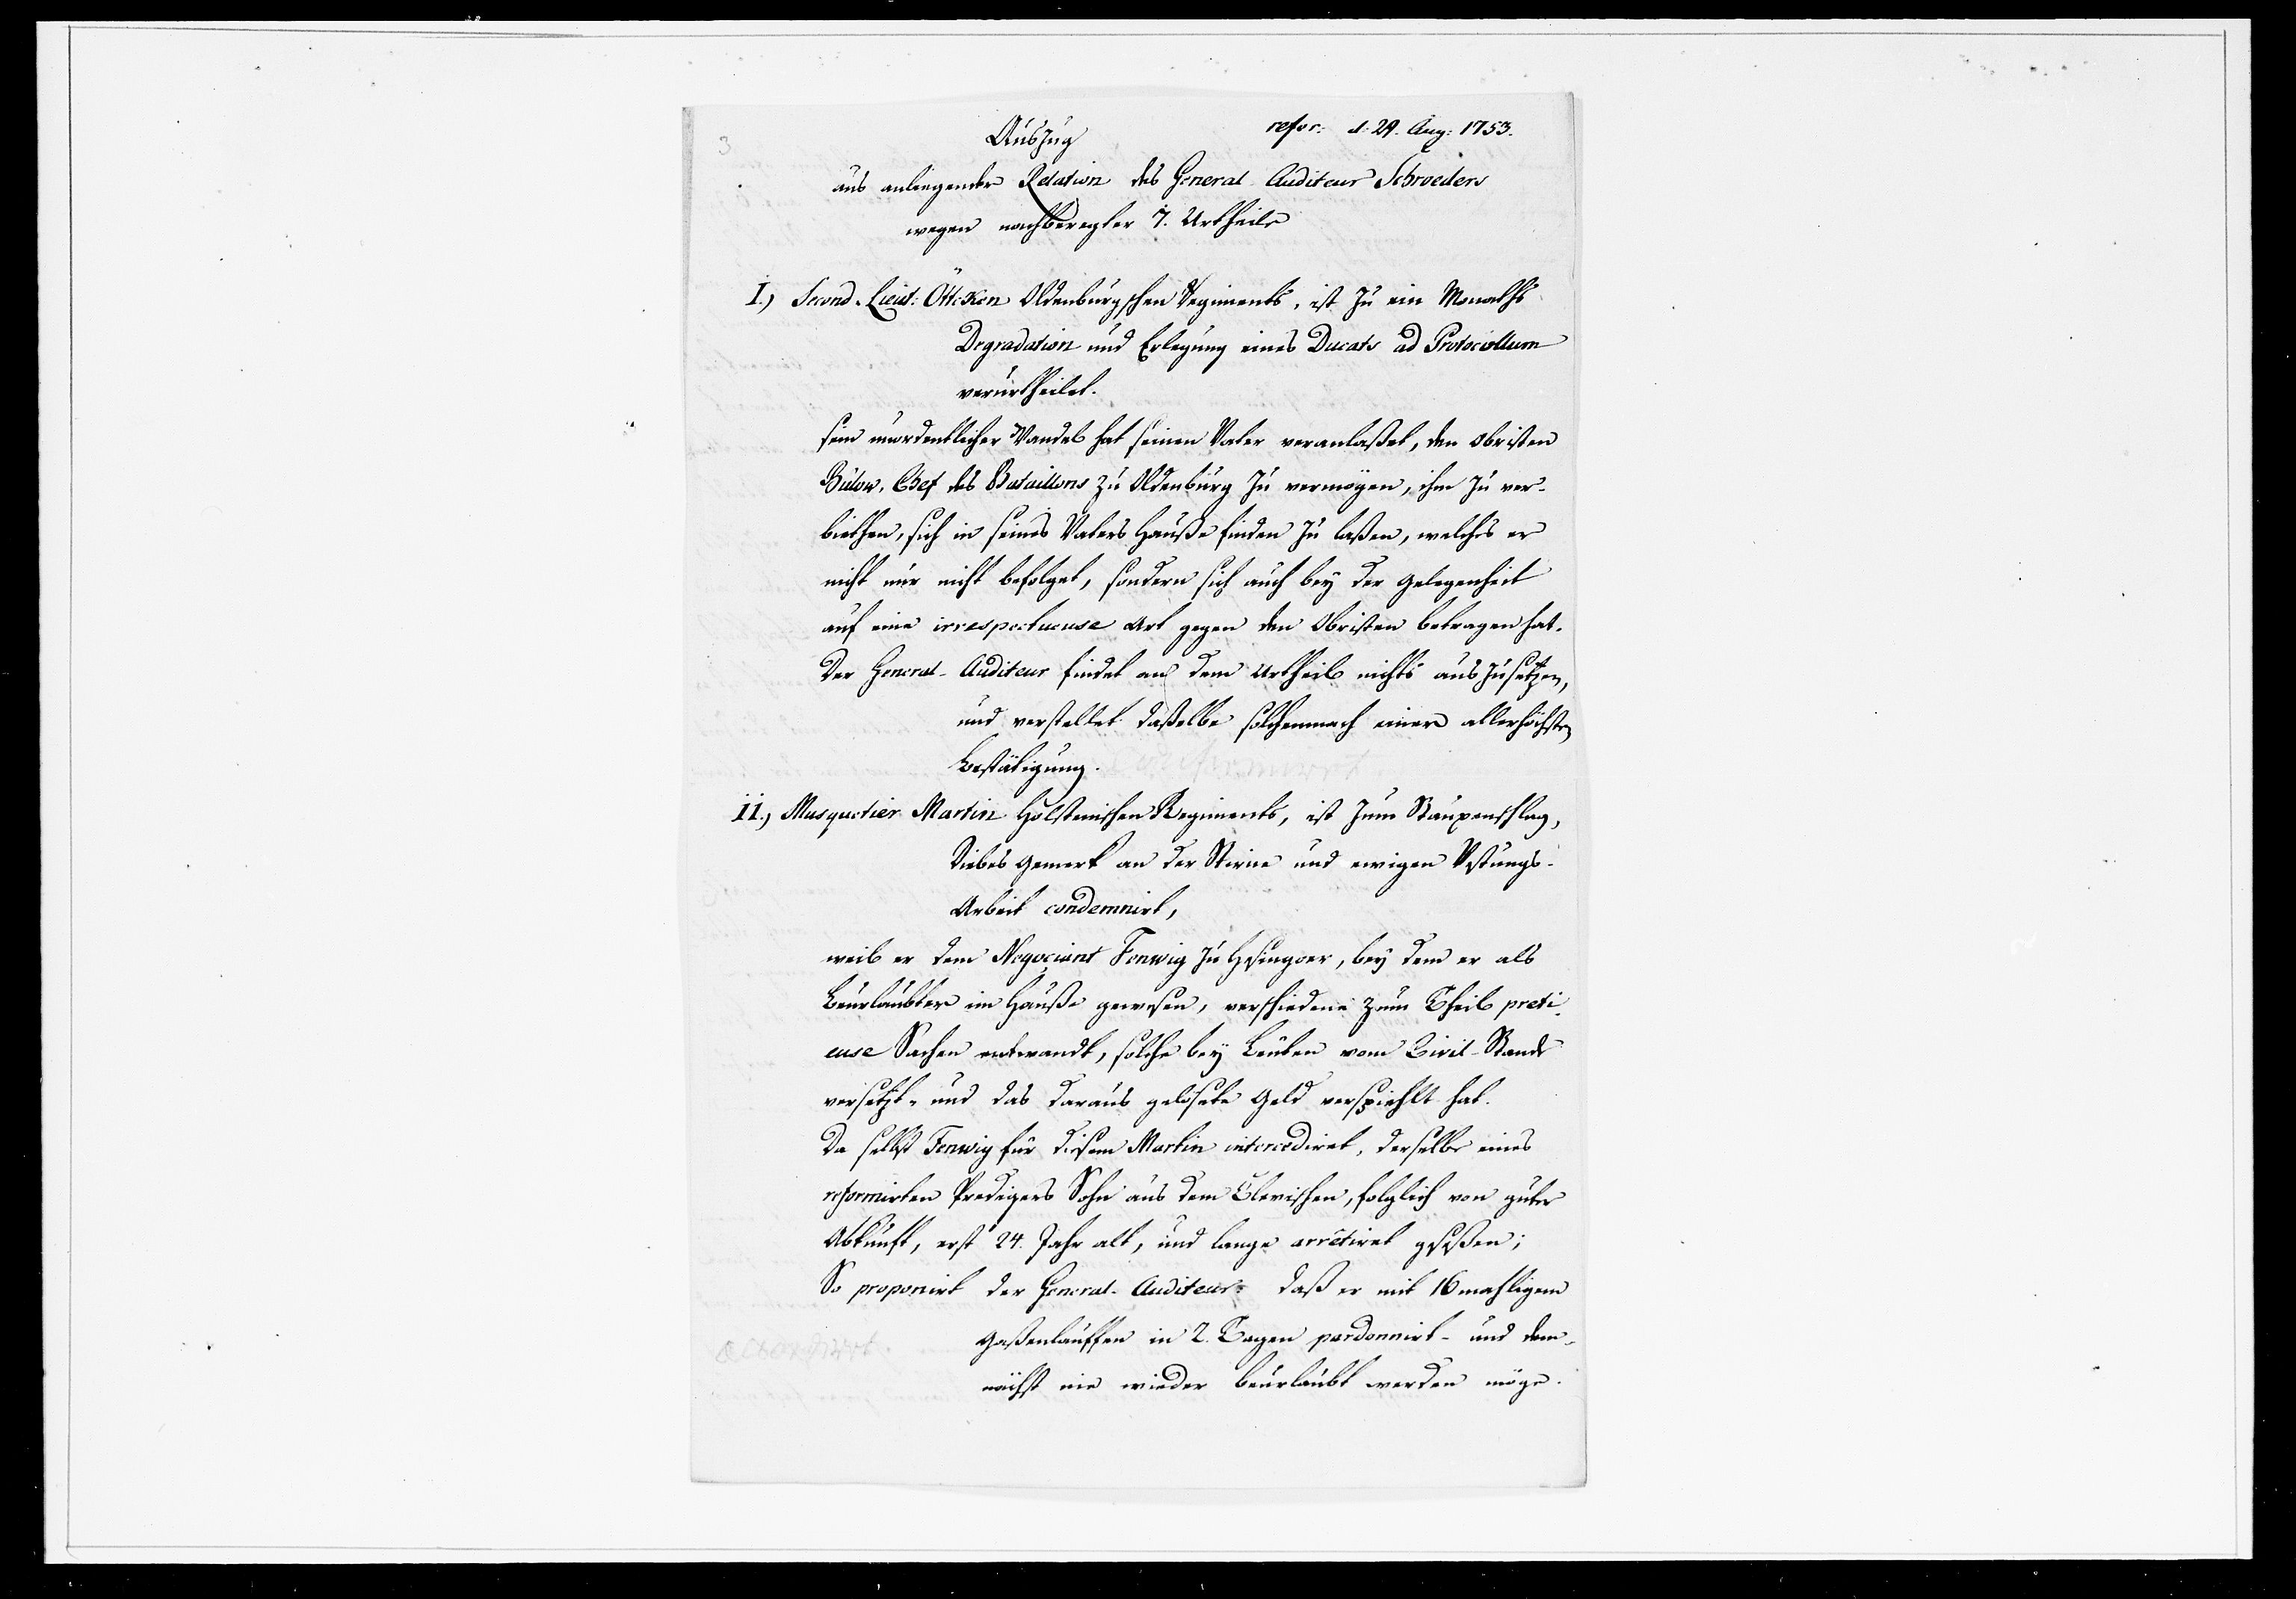 3
refer: d. 29. Aug: 1753.
Auszug
aus anliegender Relation des General Auditeur Schroeders
wegen nachberegter 7. Urtheile
I.) Second-Lieut: Öttcken Oldenburgschen Regiments, ist zu ein Monaths
Degradation und Erlegung eines Ducats ad Protocollum
verurtheilet.
sein unordentlicher Wandel hat seinen Vater veranlaßet, den Obristen
Bülow, Chef des Bataillons zu Oldenburg zu vermögen, ihm zu ver-
biethen, sich in seines Vaters Hauße finden zu laßen, welches er
nicht nur nicht befolget, sondern sich auch bey der Gelegenheit
auf eine irrespectueuse Art gegen den Obristen betragen hat.
Der General-Auditeur findet an dem Urtheil nichts auszusetzen,
und verstellet daßelbe solchemnach einer allerhöchsten
Bestätigung.
II.) Musquetier Martin Holsteinschen Regiments, ist zum Staupenschlag,
Diebes Gemerk an der Stirne und ewigen Vestungs-
Arbeit condemnirt,
weil er dem Negociant Fenwig zu Helsingoer, bey dem er als
Beurlaubter im Hauße gewesen, verschiedene zum Theil preti-
euse Sachen entwandt, solche bey Leuten vom Civil-Stande
versetzt- und das daraus gelösete Geld verspiehlt hat.
Da selbst Fenwig für diesem Martin intercediret, derselbe eines
reformirten Predigers Sohn aus dem Clevischen, folglich von guter
Abkunft, erst 24. Jahr alt, und lange arrêtiret geseßen;
So proponirt der General-Auditeur: daß er mit 16 mahligem
Gaßenlauffen in 2. Tagen pardonnirt- und dem-
nächst nie wieder beurlaubt werden möge.